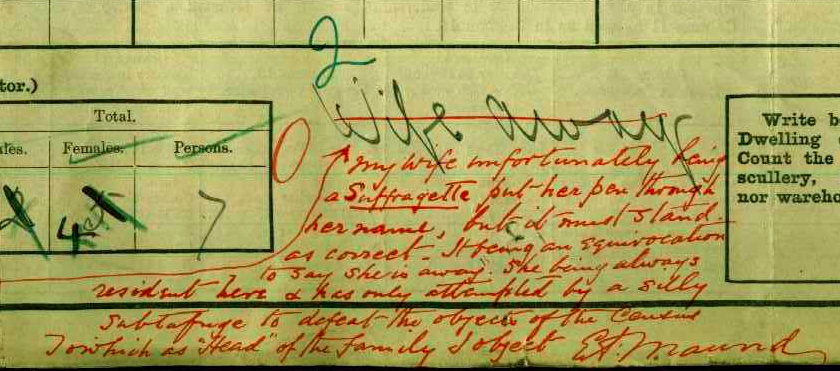 2
tor.)
Total.
ales. Females. Persons.
4 7
Wife away
my wife unfortunately being
a Suffragette put her pen through
her name, but it must stand
as correct. It being an equivocation
to say she is away. She being always
resident here & has only attempted by a silly
subtafuge to defeat the object of the Census
To which as "Head" of the Family I object E A Maund
Write be
Dwelling
Count the
scullery,
nor wareho